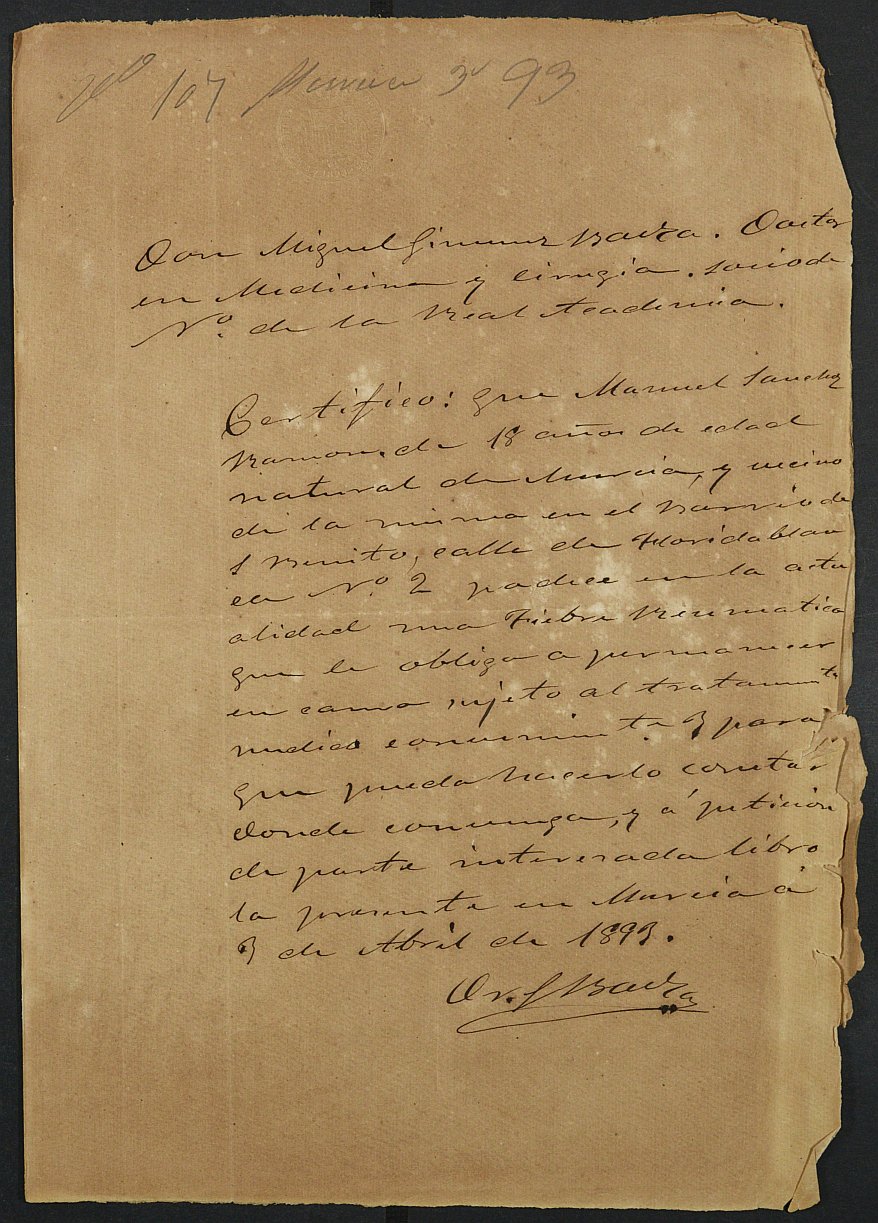 Nº 107 Murcia 3º 93
Don Miguel Gimenez Baeza. Doctor
en Medicina y Cirugía. Socio de
Nº. de la Real Academia.
Certifico: que Manuel Sanchez
Ramon, de 18 años de edad
natural de Murcia, y vecino
de la misma en el Barrio de
S Benito, calle de Floridablan
ca Nº. 2 padece en la actu
alidad una Fiebre Reumatica
que le obliga a permanecer
en cama sujeto al tratamiento
medico conveniente. Y para
que pueda hacerlo constar
donde convenga, y á peticion
de parte interesada libro
la presente en Murcia á
3 de Abril de 1893.
Dr. G Baeza